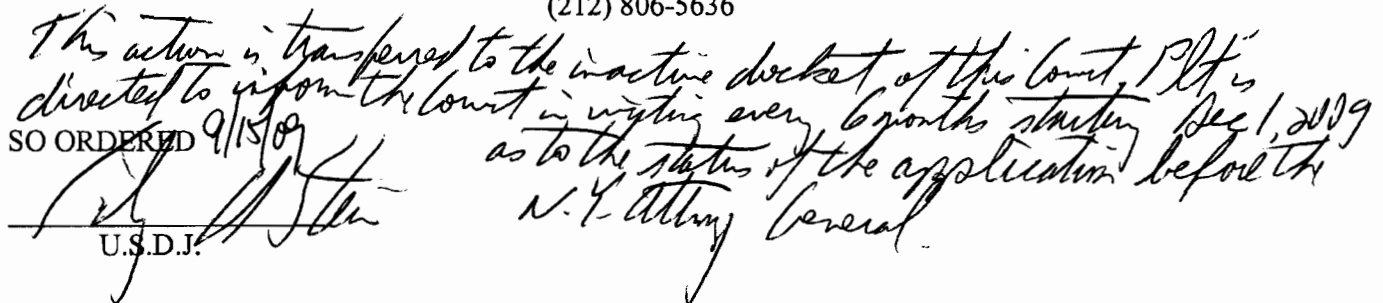 (212) 806-5636
This action is transferred to the inactive docket of this Court. Plt is
directed to inform the Court in writing every 6 months starting Dec 1, 2009
SO ORDERED 9/15/09
as to the status of the application before the
N.Y. Attny General.
U.S.D.J.